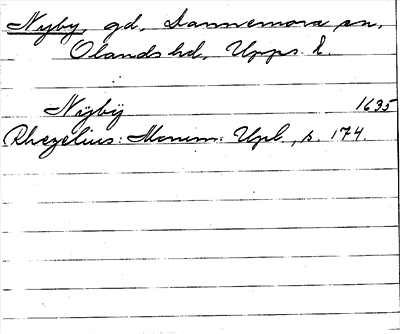 Nyby, gd, Dannemora sn,
Olands hd, Upps. l.
Nÿbÿ 1635
Rhezelius: Monum: Upl., s. 174.